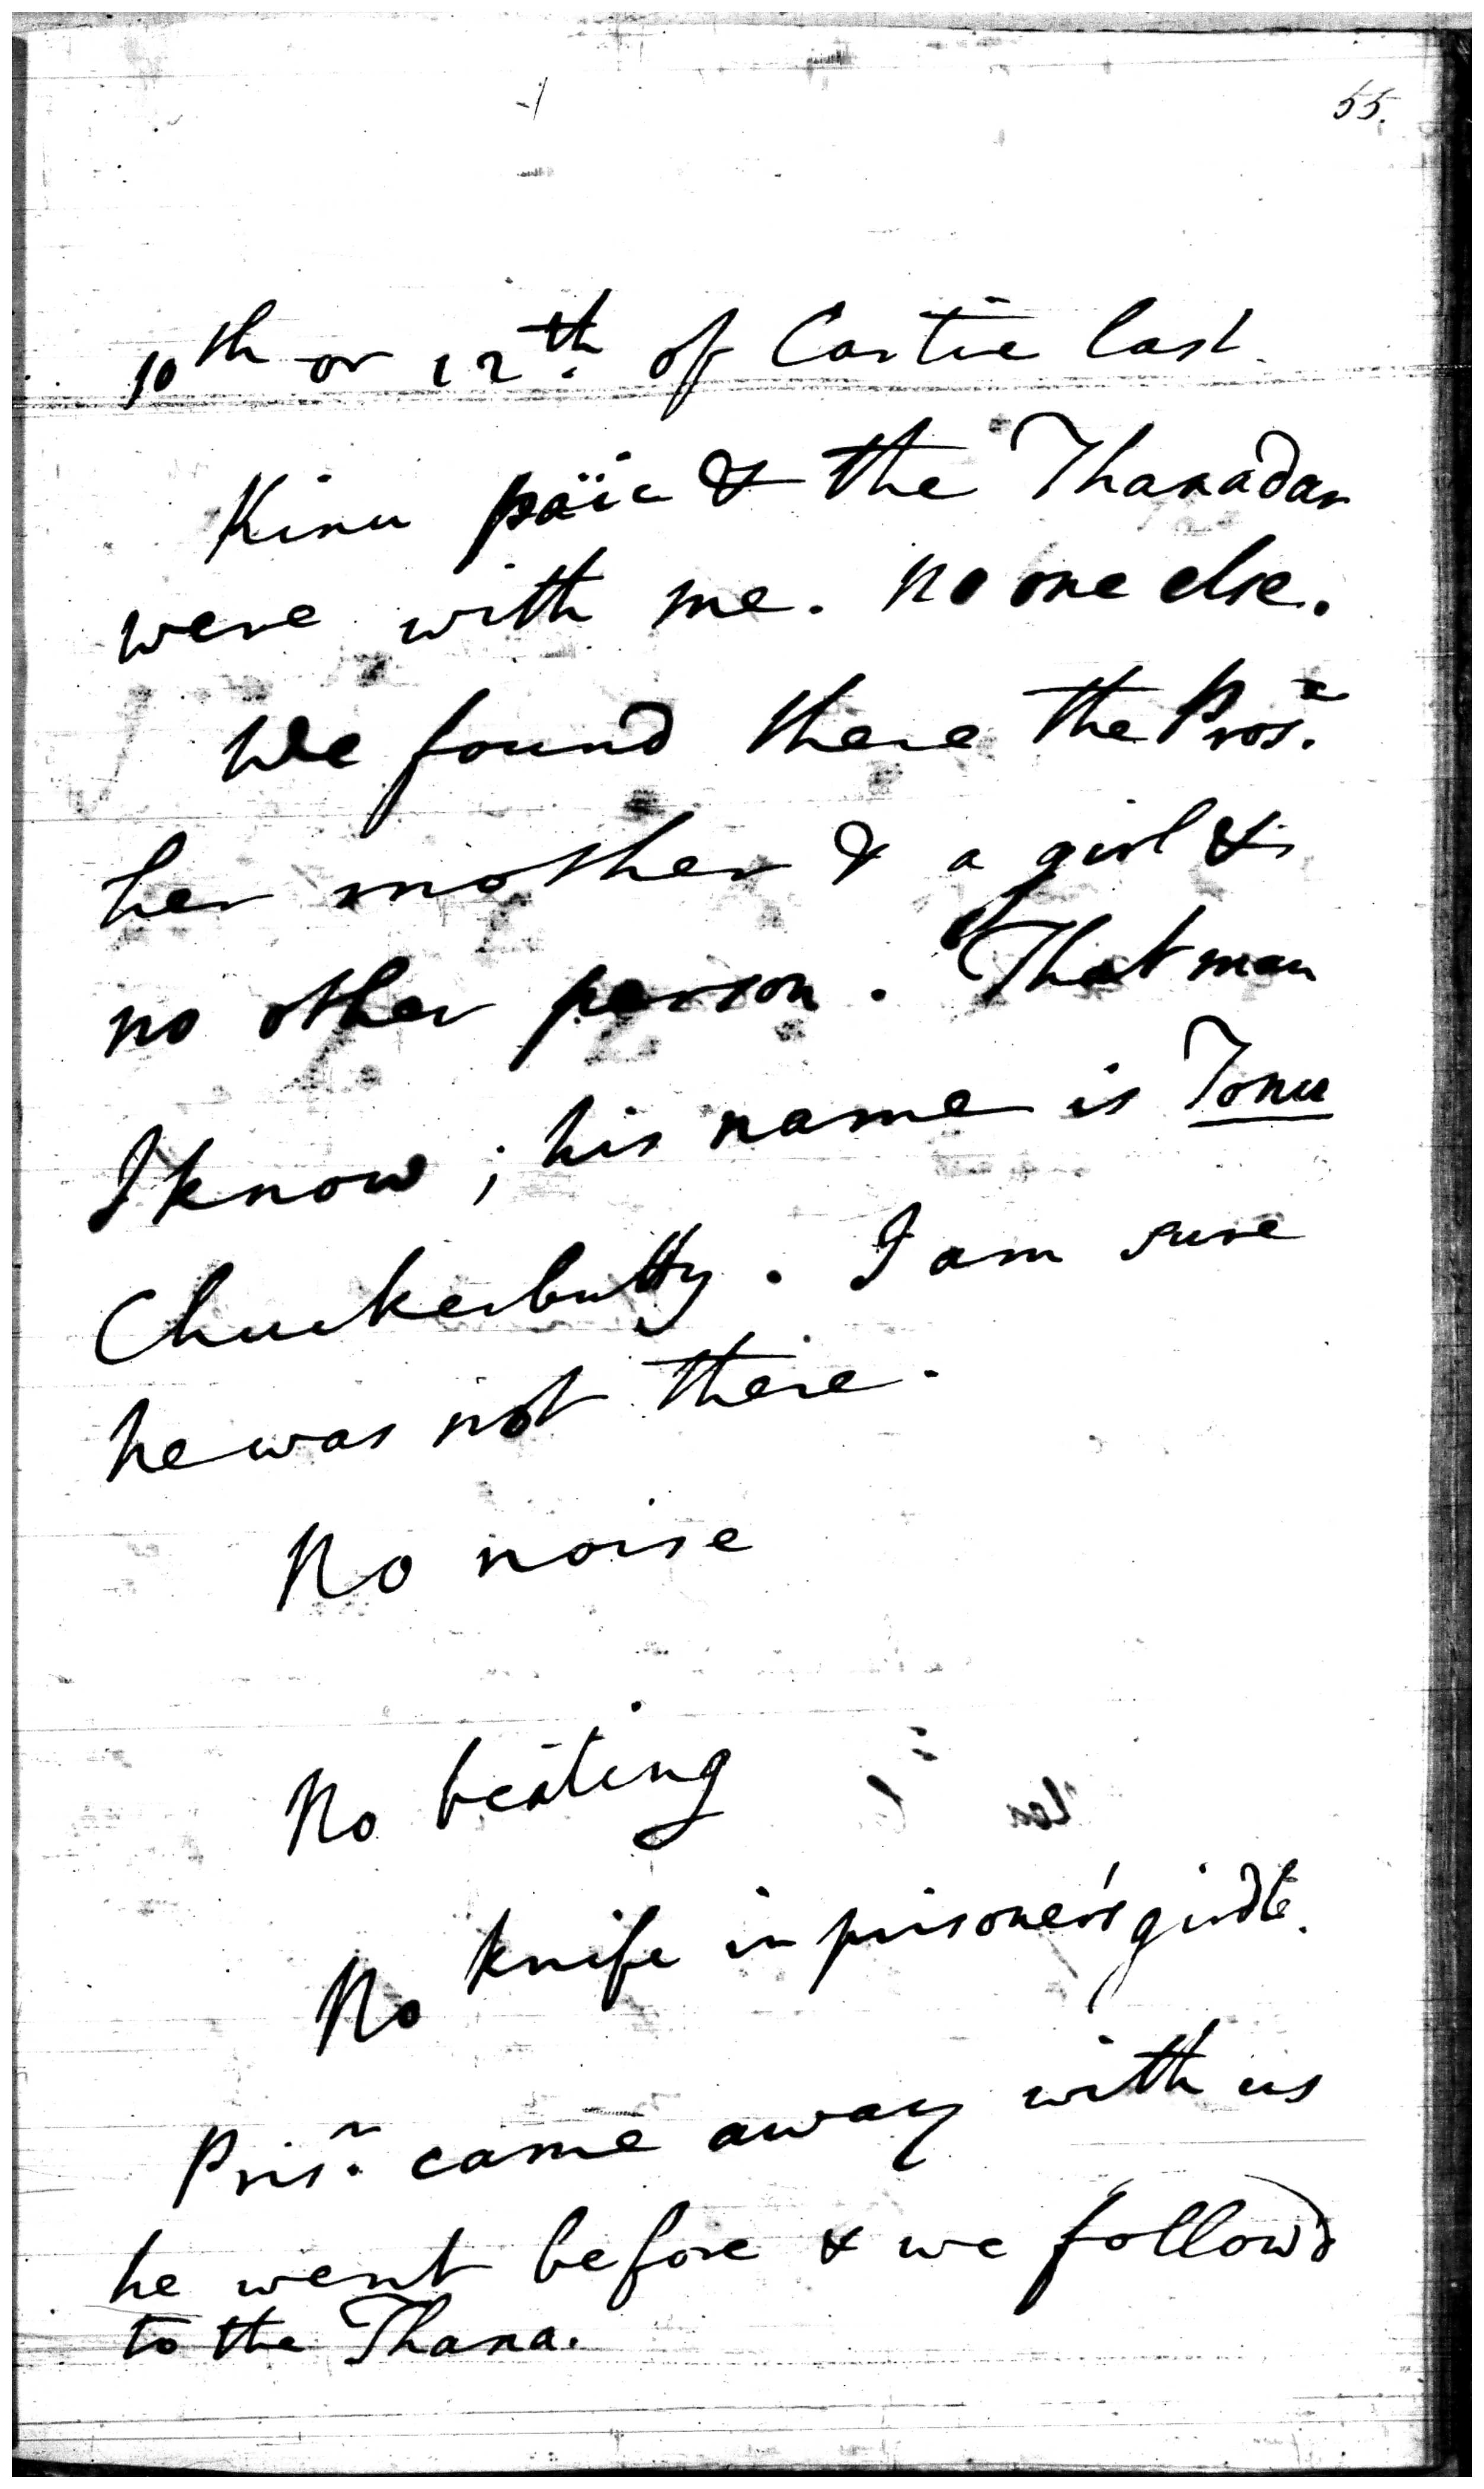 55.
10th or 12th. of Cartic last.
Kinu päic & the Thanadar
were with me. no one else.
We found there the Prosx.
her mother & a girl &
no other person. That man
I know; his name is Tonu
Chuckerbutty. I am sure
he was not there.
No noise
No beating
No knife in prisoner's girdle.
Prisr. came away with us
he went before & we follow'd
to the Thana.